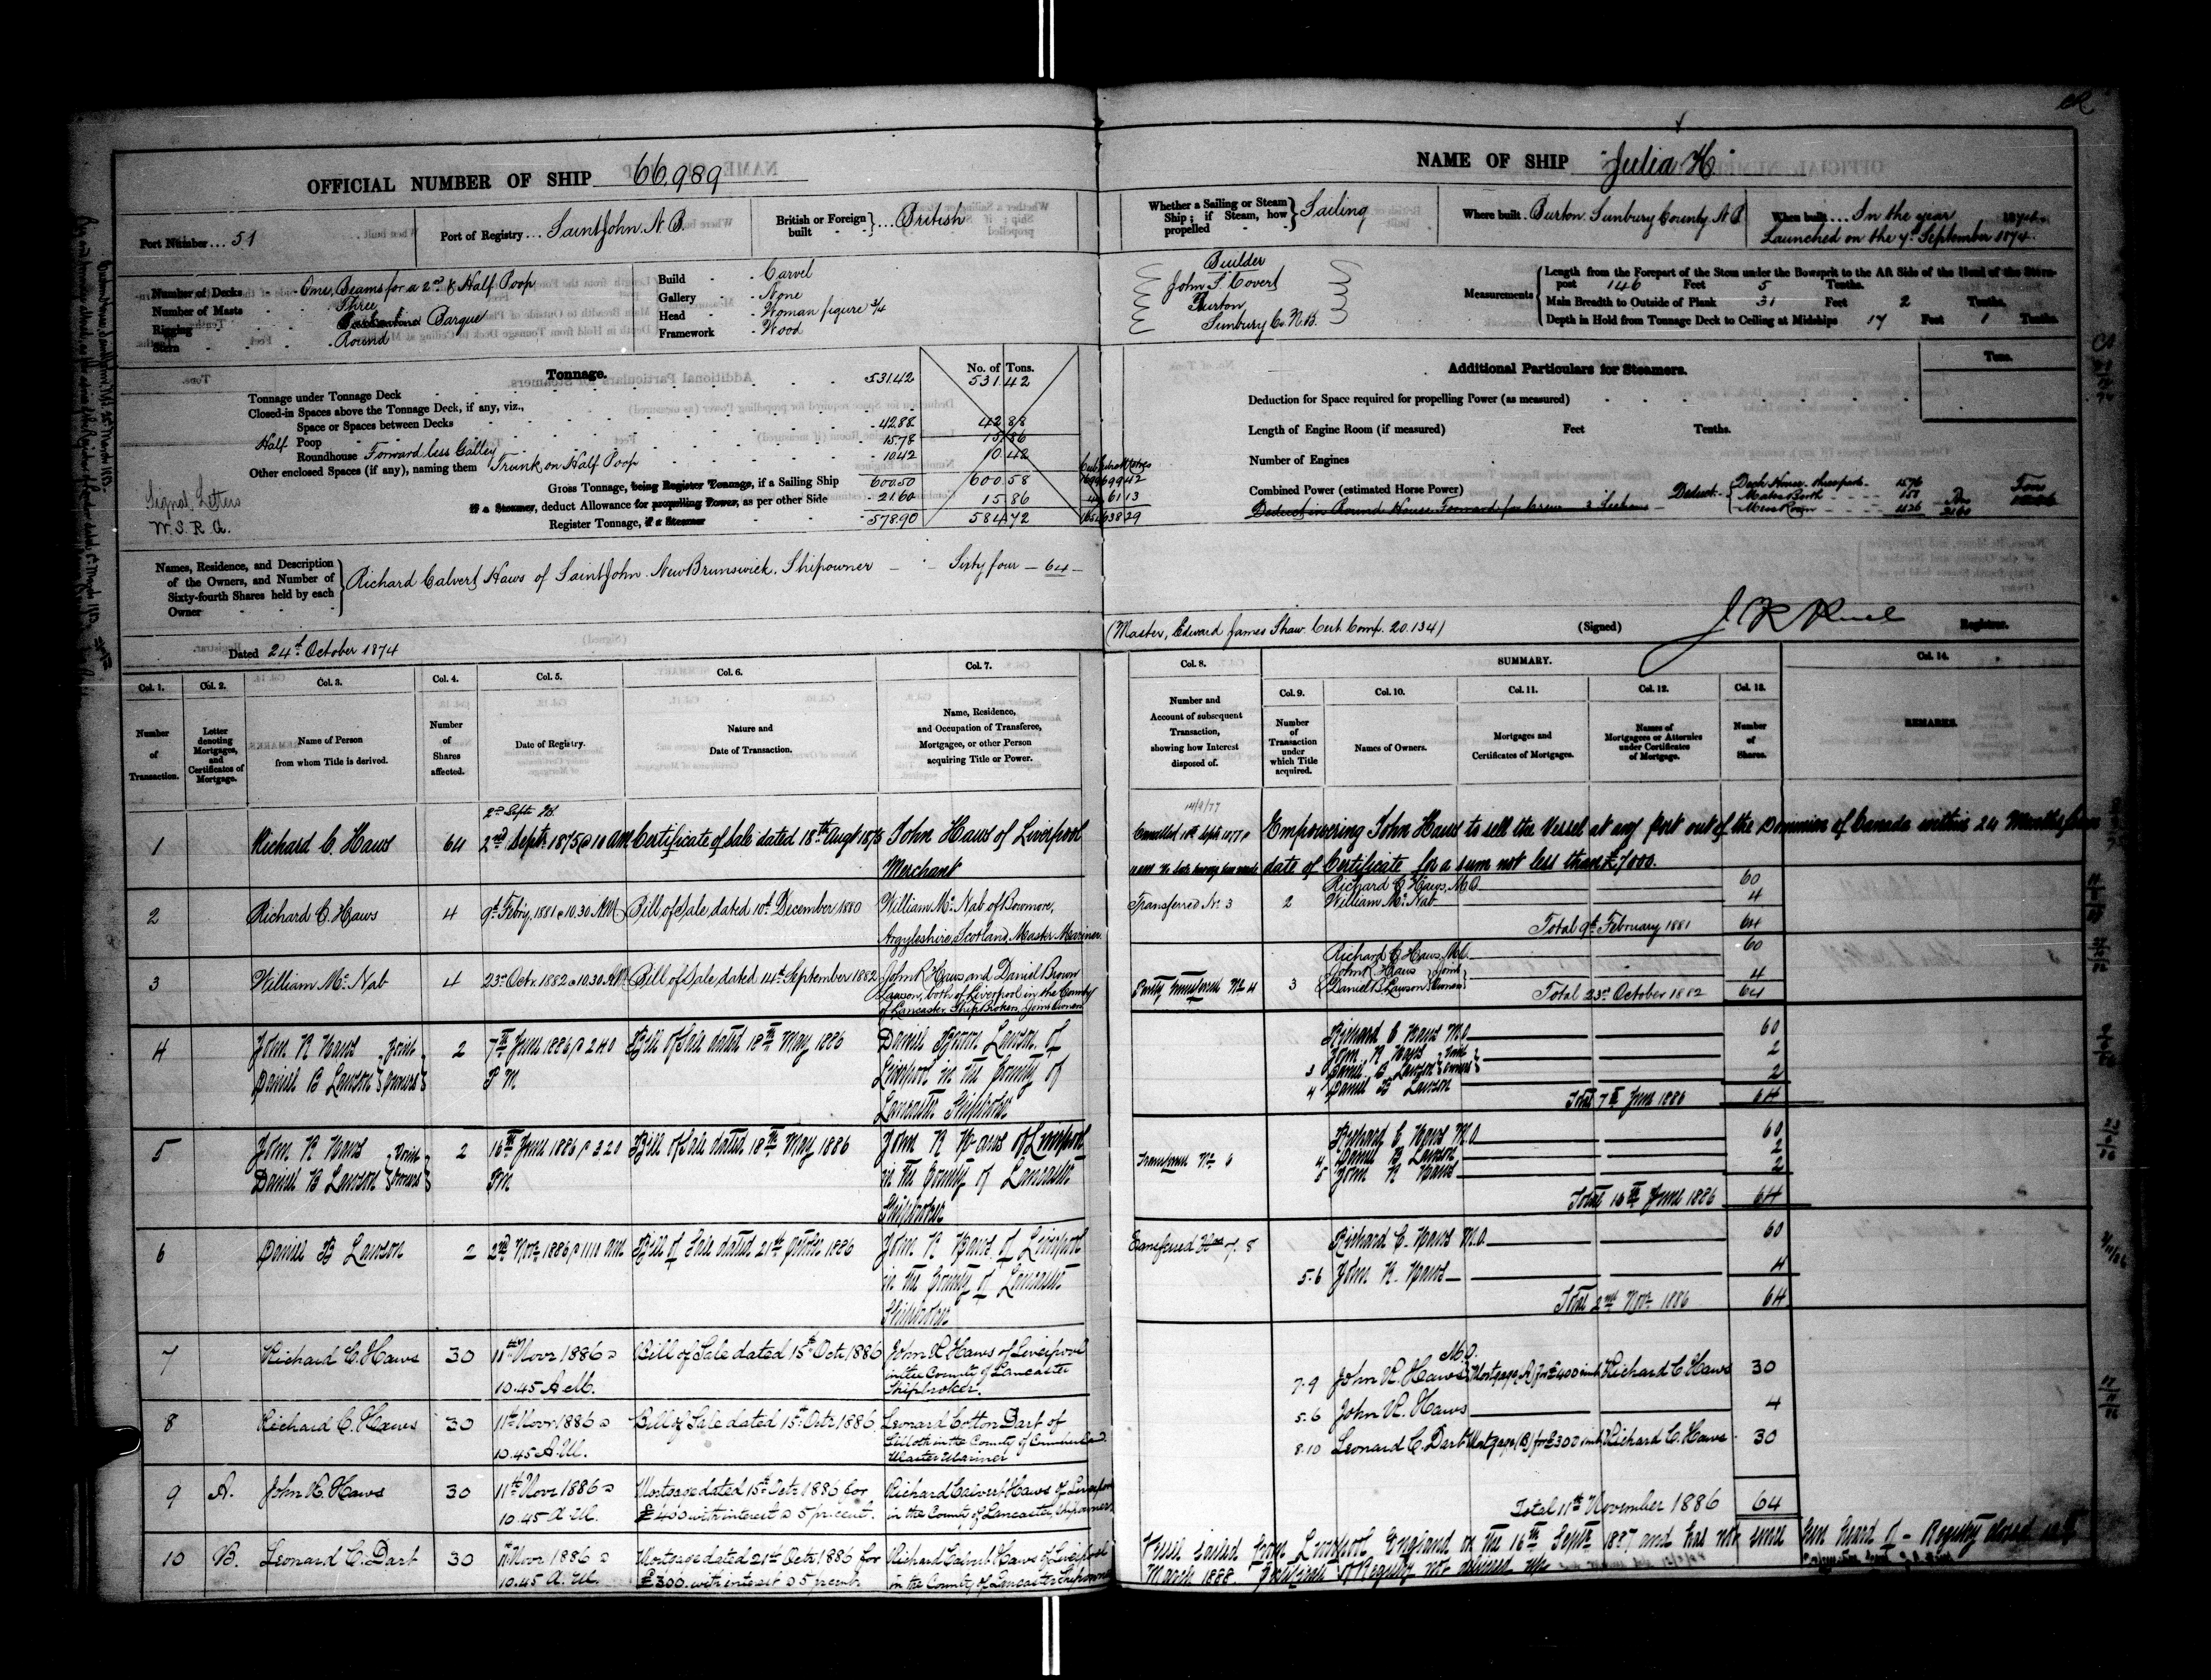 OFFICIAL NUMBER OF SHIP 66,989
Port Number ... 51
Port of Registry ... Saint John N.B.
British or Foreign built } ... British
Number of Decks - One, Beams for a 2nd & Half Poop
Number of Masts - Three
Rigging - Barque
Stern - Round
Build - Carvel
Gallery - None
Head - Woman figure 3/4
Framework - Wood
Tonnage.
No. of Tons.
Tonnage under Tonnage Deck 531.42 531.42
Closed-in Spaces above the Tonnage Deck, if any, viz.,
Space or Spaces between Decks
Half Poop 42.88 42.88
Roundhouse Forward less Galley 15.78 15.86
Other enclosed Spaces (if any), naming them Trunk on Half Poop 10.42 10.42
Gross Tonnage, being Register Tonnage, if a Sailing Ship 600.50 600.58
if a Steamer, deduct Allowance for propelling Power, as per other Side 21.60 15.86
Register Tonnage, if a Steamer 578.90 584.72
Signal Letters
W.S.R.G.
Names, Residence, and Description of the Owners, and Number of Sixty-fourth Shares held by each Owner
Richard Calvert Haws of Saint John New Brunswick, Shipowner — Sixty four — 64 —
Dated 24th October 1874
NAME OF SHIP "Julia H."
Whether a Sailing or Steam Ship; if Steam, how propelled } Sailing
Where built . Burton Sunbury County N.B.
When built ... In the year 1874.
Launched on the 7th September 1874.
Builder
John F. Covert
Burton
Sunbury Co. N.B.
Measurements
Length from the Forepart of the Stem under the Bowsprit to the Aft Side of the Head of the Stern-post 146 Feet 5 Tenths.
Main Breadth to Outside of Plank 31 Feet 2 Tenths,
Depth in Hold from Tonnage Deck to Ceiling at Midships 17 Feet 1 Tenths.
Additional Particulars for Steamers.
Tons.
Deduction for Space required for propelling Power (as measured)
Length of Engine Room (if measured) Feet Tenths.
Number of Engines
Combined Power (estimated Horse Power)
(Master, Edward James Shaw. Cert. Comp. 20.134)
(Signed) Registrar.
Col. 1. Col. 2. Col. 3. Col. 4. Col. 5. Col. 6. Col. 7.
Number of Transaction.
Letter denoting Mortgages, and Certificates of Mortgage.
Name of Person from whom Title is derived.
Number of Shares affected.
Date of Registry.
Nature and Date of Transaction.
Name, Residence, and Occupation of Transferee, Mortgagee, or other Person acquiring Title or Power.
Col. 8. SUMMARY. Col. 14.
Col. 9. Col. 10. Col. 11. Col. 12. Col. 13.
Number and Account of subsequent Transaction, showing how Interest disposed of.
Number of Transaction under which Title acquired.
Names of Owners.
Mortgages and Certificates of Mortgages.
Names of Mortgagees or Attornies under Certificates of Mortgage.
Number of Shares.
REMARKS.
1 Richard C. Haws 64 2nd Septr 1875 @ 10 am Certificate of Sale dated 18th Augt 1875 John Haws of Liverpool
Merchant
14/9/77
Empowering John Haws to sell the Vessel at any port out of the Dominion of Canada within 24 Months from
date of Certificate for a sum not less than £7000.
2 Richard C. Haws 4 9th Febry, 1881 @ 10.30 AM Bill of Sale dated 10th December 1880 William McNab of Bowmore,
Argyleshire, Scotland, Master Mariner
Transferred No 3 2
Richard C. Haws, M.O. 60
William McNab 4
Total 9th February 1881 64
3 William McNab 4 23rd Octr 1882 @ 10.30 AM Bill of Sale dated 14th September 1882 John R Haws and Daniel Brown
Lawson, both of Liverpool in the County
of Lancaster, Ship Brokers, Joint Owners
3
Richard C. Haws, M.O. 60
John R Haws } Joint
Daniel B Lawson } Owners 4
Total 23rd October 1882 64
4 John R Haws } Joint
Daniel B Lawson } Owners 2 7th June 1886 @ 2 40 PM Bill of Sale dated 18th May 1886 Daniel Brown Lawson of
Liverpool in the County of
Lancaster Shipbroker
Richard C Haws M.O 60
3 John R Haws } Joint 2
Daniel B Lawson } Owners
4 Daniel B Lawson 2
Total 7th June 1886 64
5 John R Haws } Joint
Daniel B Lawson } Owners 2 16th June 1886 @ 3 20 PM Bill of Sale dated 18th May 1886 John R Haws of Liverpool
in the County of Lancaster
Shipbroker
Transferred No 6
Richard C Haws M.O 60
4 Daniel B Lawson 2
5 John R Haws 2
Total 16th June 1886 64
6 Daniel B Lawson 2 2nd Novr 1886 @ 11 10 am Bill of Sale dated 21st October 1886 John R Haws of Liverpool
in the County of Lancaster
Shipbroker
Transferred Nos 7. 8
Richard C. Haws M.O. 60
5-6 John R. Haws 4
Total 2nd Novr 1886 64
7 Richard C. Haws 30 11th Novr 1886 @ 10.45 A.M. Bill of Sale dated 15th Octr 1886 John R Haws of Liverpool
in the County of Lancaster
Shipbroker.
M.O.
7-9 John R. Haws Mortgage (A) for £400 int. Richard C Haws 30
5-6 John R. Haws 4
8 Richard C. Haws 30 11th Novr 1886 @ 10.45 A.M. Bill of Sale dated 15th Octr 1886 Leonard Cotton Dart of
Silloth in the County of Cumberland
Master Mariner
8-10 Leonard C. Dart Mortgage (B) for £300 int. Richard C. Haws 30
9 A. John R. Haws 30 11th Novr 1886 @ 10.45 A.M. Mortgage dated 15th Octr 1886 for
£400 with interest @ 5 per cent. Richard Calvert Haws of Liverpool
in the County of Lancaster, Shipowner
Total 11th November 1886 64
10 B. Leonard C. Dart 30 11th Novr 1886 @ 10.45 A.M. Mortgage dated 21st Octr 1886 for
£300 with interest @ 5 per cent Richard Calvert Haws of Liverpool
in the County of Lancaster Shipowner
Vessel sailed from Liverpool England on the 16th Septr 1887 and has not since been heard of - Registry closed
March 1888. Certificate of Registry not delivered up